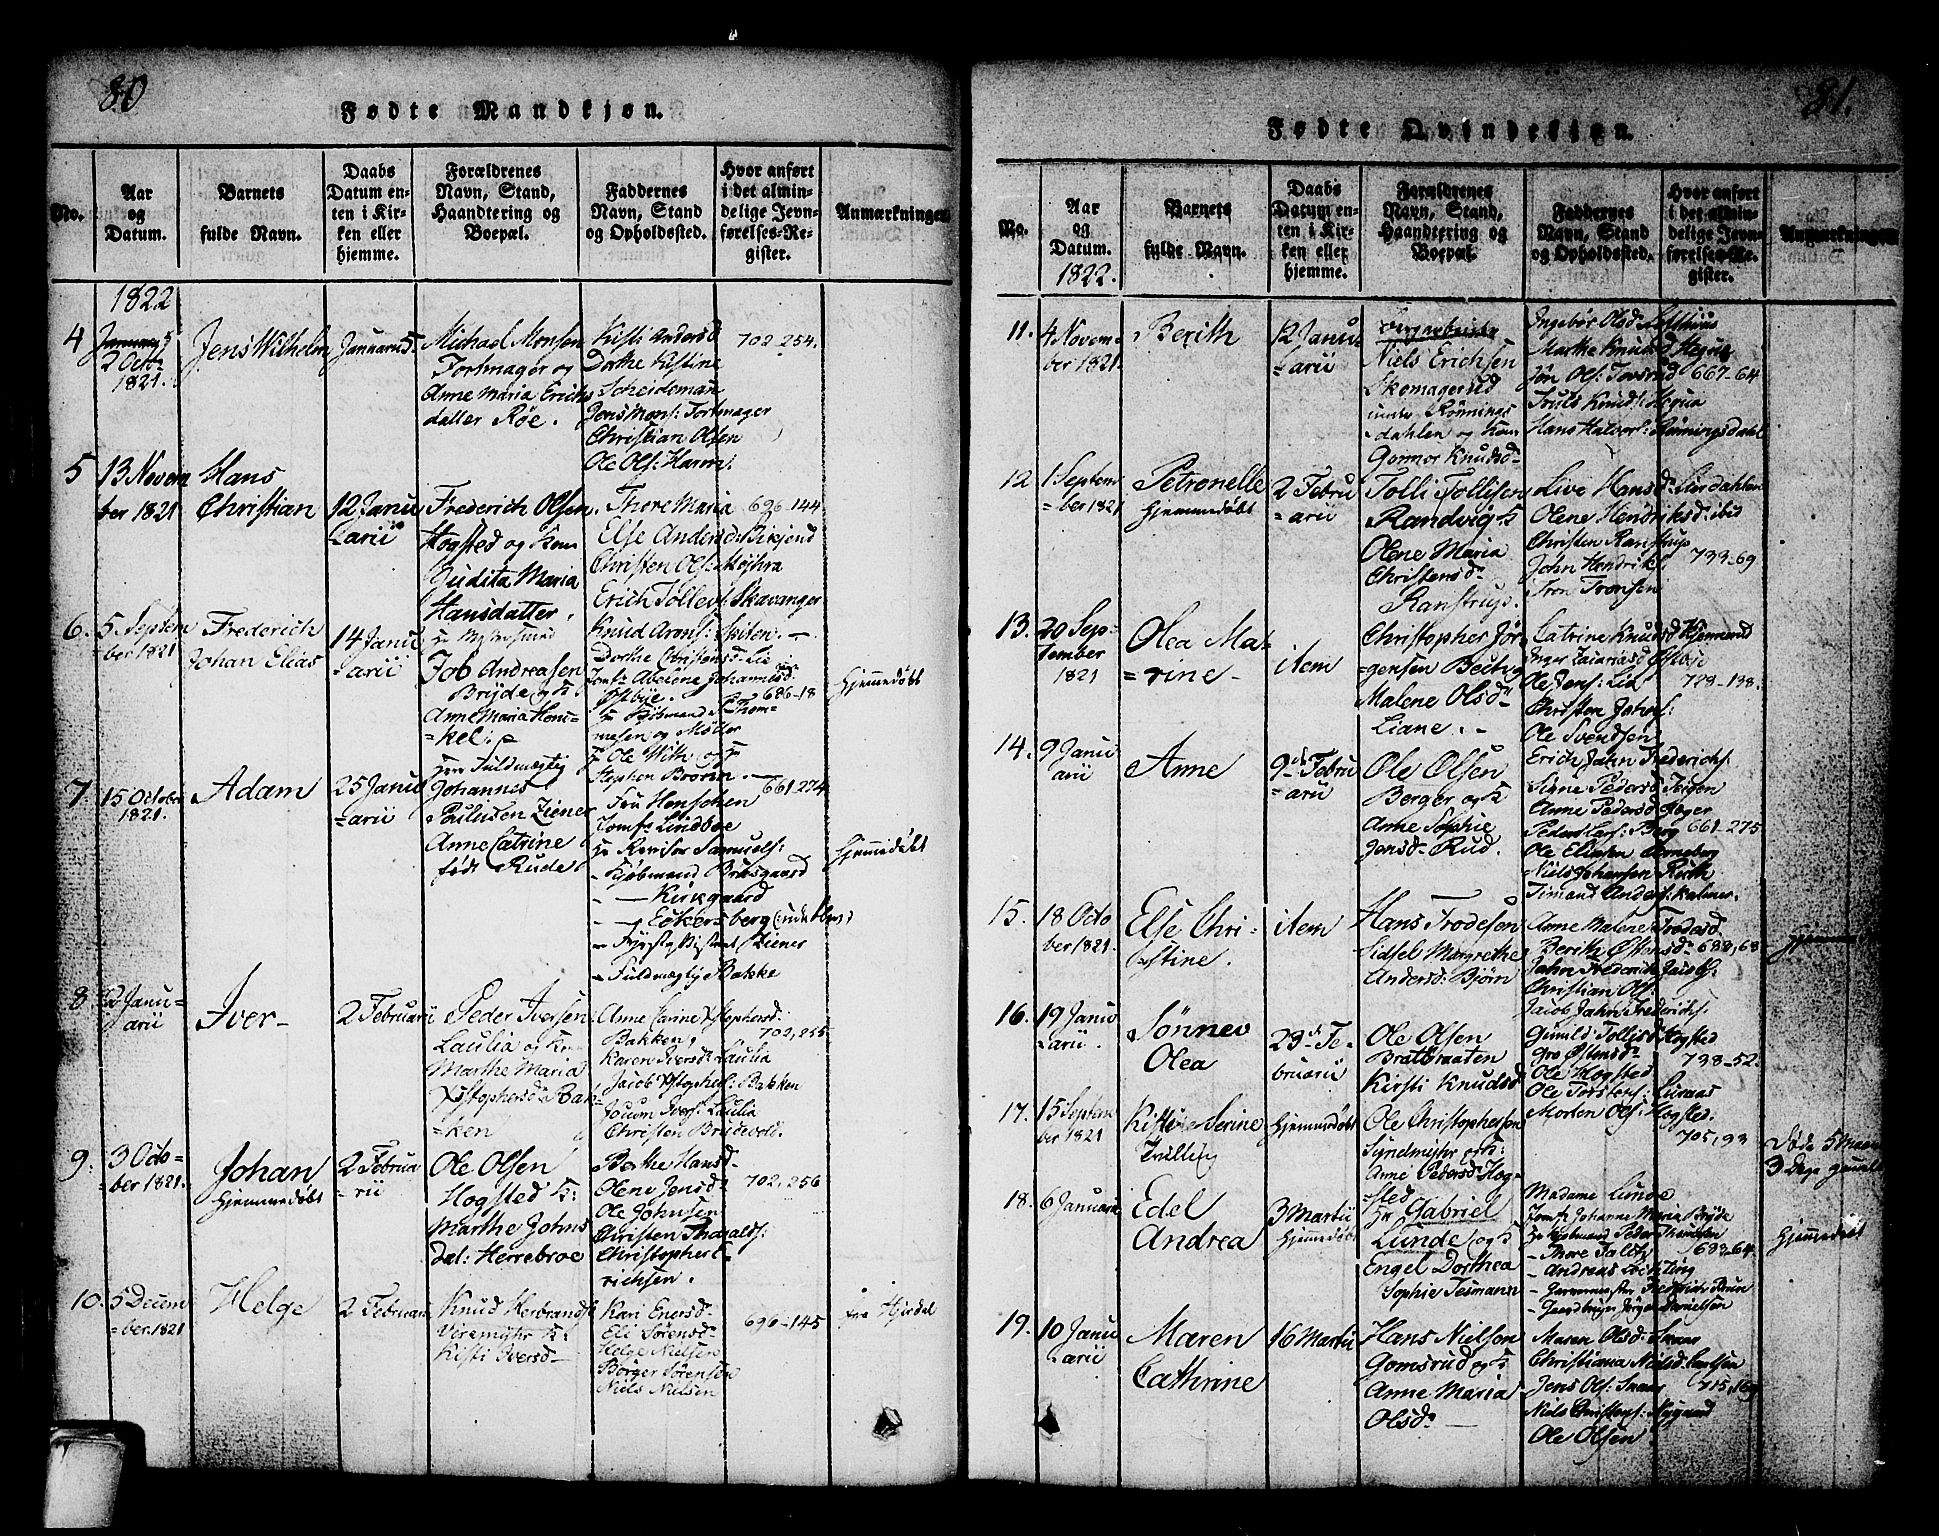 80
Fødte Mandkjøn.
No.
Aar
og
Datum.
Barnets
fulde Navn.
Daabs
Datum en-
ten i Kir-
ken eller
hjemme.
Forældrenes
Navn, Stand,
Haandtering og
Boepæl.
Faddernes
Navn, Stand
og Opholdssted.
Hvor anført
i det almin-
delige Jevn-
førelses-Re-
gister.
Anmærkninger
1822
4
2 Octo
1821.
Jens Wilhelm
Januarii 5.
Michael Monsen
Fortmager og
Anne Maria Erichs
datter Røe.
Kisti Andersd
Dorthe Kistine
Scheideman
Jens Mons: Fortmager
Christian Olsen
Ole Ols: Havn:
702-254.
5
13 Novem
ber 1821
Hans
Christian
12 Janu
arii
Frederich Olsen
Hogsted og Kone
Judita Maria
Hansdatter.
Thore Maria
Else Andersd:
Christen Ols:
Erich Tollevs: Skavanger
696-144
6.
5 Septem
ber 1821
Frederich
Johan Elias
14 Janu
arii
Job Andreasen
Brijde og K
Anne Maria Heni-
kel:
Knud Arons:
Dorthe Christensd: Lie
Østbÿe.
686-18
Hjemmedøbt
7.
15 Octobr
1821.
Adam
25 Janu
arii
Hr: Fuldmægtig
Johannes
Paulusen Ziener
Anne Catrine
født Rude
Fru Henschen
Jomf: Lindboe
Hr Revisor Samuels:
Kjøbmand Brusgaard
Kirkegaard
Eckersberg
Ziener
Fuldmægtig Bakke
661.274
Hjemmedøbt
8
2 Janu-
arii
Iver
2 Februarii
Peder Iversen
Laulia og Kone
Marthe Maria
Xstophersd: Bak-
ken
Anne Carine Xstophersd:
Bakken,
Karen Iversd: Laulia
Jacob Xstophers: Bakken
Jocum Ivers: Laulia
Christen Brudevold.
702,255
9.
3 Octo-
ber 1821.
Johan
Hjemmedøbt
2 Februa
rii
Ole Olsen
Hogsted K:
Marthe Johns
dat: Herrebroe
Berthe Hansd
Olene Jensd:
Ole Johnsen
Christen Tharalds:
Christopher E-
richsen.
702,256
10.
5 Decem
ber 1821
Helge
2 Februarii
Knud Herbrands:
Viremyhr K:
Kisti Iversd
Kari Enersd
Eli Sørensd
Helge Nielsen
Børger Sørensen
Niels Nielsen
696-145
fra Hjrdal
81.
Fødte Qvindekjøn.
No.
Aar
og
Datum.
1822.
Barnets
fulde Navn.
Daabs
Datum en-
ten i Kir-
ken eller
hjemme.
Forældrenes
Navn, Stand,
Haandtering og
Boepæl.
Faddernes
Navn, Stand
og Opholdssted.
Hvor anført
i det almin-
delige Jevn-
førelses-Re-
gister.
Anmærkninger
11.
4 Novem-
ber 1821.
Berith
12 Janu
arii
Niels Erichsen
Skomagerud
under Rønnings
dahlen og Kone
Gonnor Knudsd
Ingebør Olsd:
Marthe Knudsd:
Jøn Ols: Tovsrud
Truls Knuds:
Hans Halvors: Rønningsdahl
667-64
12
1 Septem
ber 1821
Petronelle
Hjemmedøbt
2 Febru
arii
Tolli Tollisen
Randvig K
Olene Maria
Christensd:
Ranstrup.
Live Hansd: Lierdahlen
Olene Hendriksd: ibid
Christen Ranstrup
John Hendriks
Tron Tronsen
739-69
13.
20 Sep-
tember
1821
Olea Ma-
rine
item
Christopher Jør
gensen
Malene Olsd
Liane.
Catrine Knudsd
Inger Zacariasd Østbÿe
Ole Jens: Lid
Christen Johns:
Ole Svendsen
723-138.
14.
9 Janu
arii
Anne
9d Febru
arii
Ole Olsen
Berger og K
Anne Sophie
Jensd: Rud.
Erich Jahn Frederichs:
Signe Pedersd Teigen
Anne Pedersd Ager
Peder Lars: Berg
Ole Eliasen
Niels Johansen
Timand Anders:
661-275
15.
18 Octo
ber 1821.
Else Chri-
stine.
item
Hans Frodesen
Sidsel Margrethe
Andersd: Bjørn
Anne Malene Frodesd.
Berithe Østensd:
Jahn Frederich
Christian Ols:
Jacob Jahn Frederichs:
688,68
16.
19 Janu
arii.
Sønnev
Olea
23d Fe-
bruarii
Ole Olsen
Bratbraaten
Kirsti Knudsd
Gunild Tollisd Hogsted
Gro Østensd:
Ole Hogsted
Ole Torsters:
Morten Ols: Hogsted.
738-52.
17.
15 Septem
ber 1821
Kistine Serine
Trilling
Hjemmedøbt
Ole Christophersen
Synelmyhr og K:
Anne Pedersd: Hog-
sted
705,93
Døde 5 Maan
3 Dage gamel
18.
6 Januarii
Edel
Andrea
3 Martii
Hjemmedøbt
Hr Gabriel
Lunde og K
Engel Dorthea
Sophie Tesmann
Madame Lunde
Jomf: Johanne Maria Brÿde
Hr Kjøbmand Peder Thomesen
Thore Foldtz
Andreas
Gaardbruger Jørgen Danielsen
683-64.
Hjemmedøbt
19.
10 Janu
arii
Maren
Cathrine
16 Martii
Hans Nielsen
Gomsrud og K
Anne Maria
Olsd
Maren Olsd: Snaar
Christiana Nielsd:
Jens Ols: Snaar
Niels Christens:
Ole Olsen
715,169